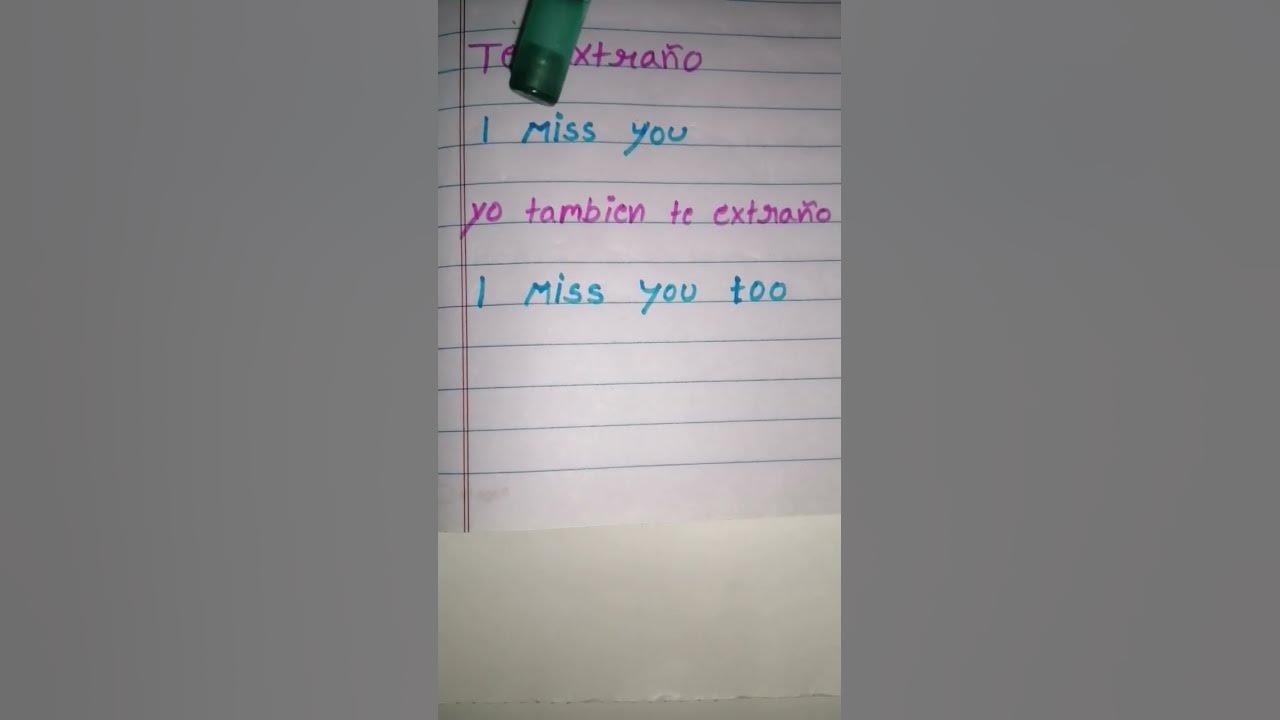 Te extraño
I miss you
yo tambien te extraño
I miss you too